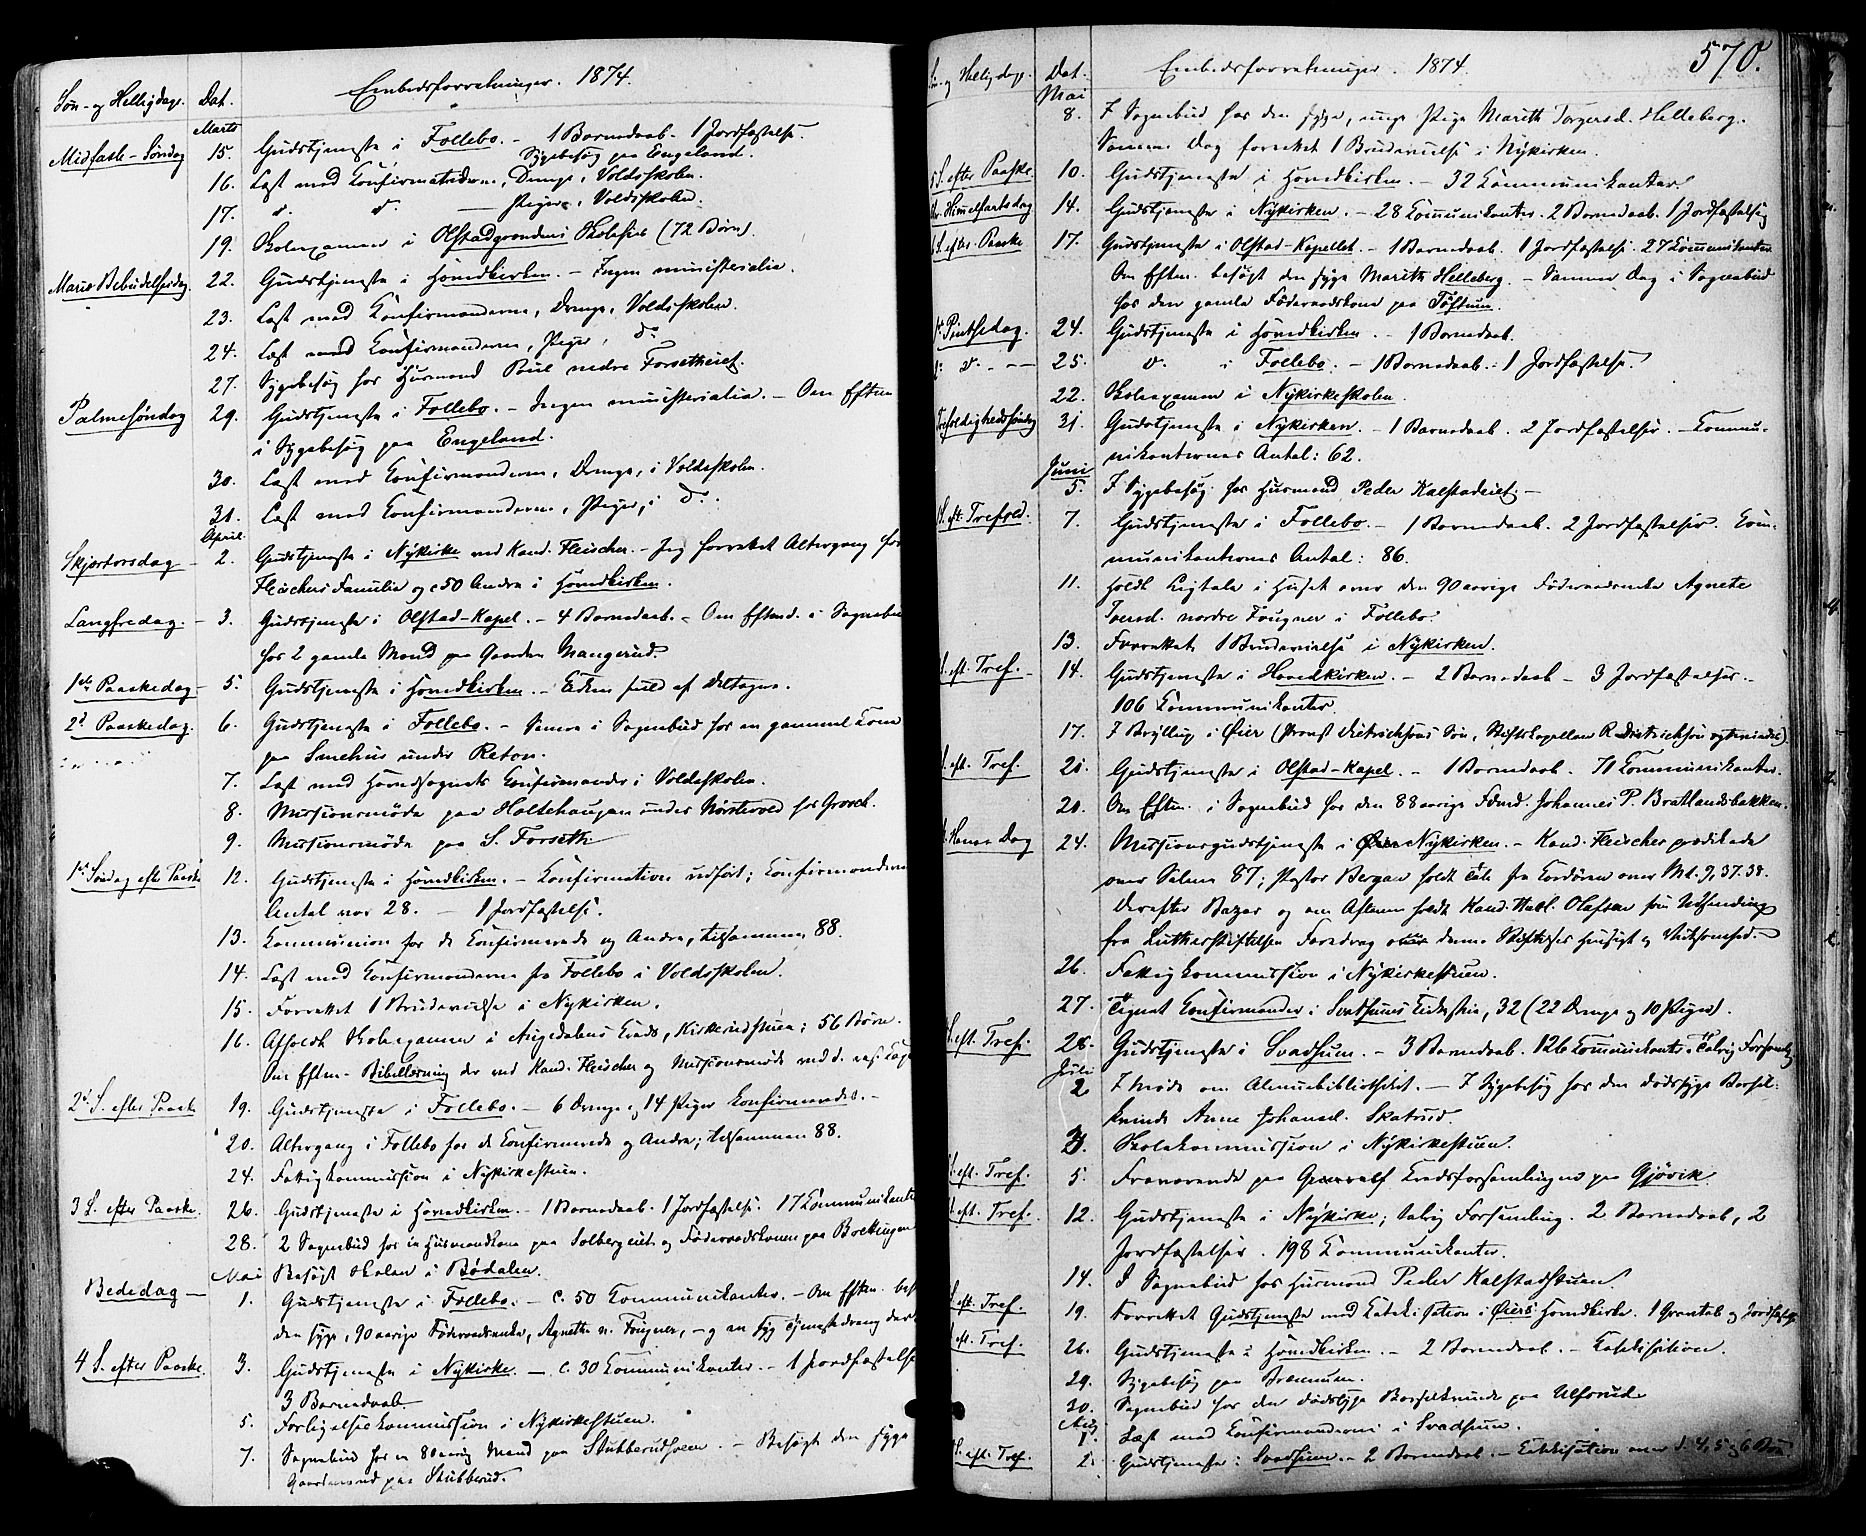 Søn- og Helligdage. Dat. Embedsforretninger. 1874.
Marts
Midfaste-Søndag 15. Gudstjeneste i Follebo. - 1 Barnedaab. 1 Jordfæstelse.
Sygebesøg paa Engeland.
16. Læst med Konfirmanderne, Drenge, i Voldsskolen.
17. d. d. — Piger, i Voldsskolen.
19. Skoleexamen i Olstadgrendens Skolehus (72 Børn).
Mariæ Bebudelsesdag 22. Gudstjeneste i Hovedkirken. - Ingen ministerialia.
23. Læst med Konfirmanderne, Drenge, Voldsskolen.
24. Læst med Konfirmanderne, Piger, d.
27. Sygebesøg hos Husmand Poul nedre Forsetheiet.
Palmesøndag 29. Gudstjeneste i Follebo. - Ingen ministerialia. - Om Efterm
i Sygebesøg paa Engeland.
30. Læst med Konfirmanderne, Drenge, i Voldsskolen.
31. Læst med Konfirmanderne, Piger, i d.
April.
Skjærtorsdag 2. Gudstjeneste i Nykirke ved Kand. Fleischer. - Jeg forrettet Altergang for
Fleischers Familie og c 50 Andre i Hovedkirken.
Langfredag. - 3. Gudstjeneste i Olstad-Kapel. - 4 Barnedaab. - Om Efterm. i Sognebud
hos 2 gamle Mænd paa Gaarden Mangerud.
1ste Paaskedag - 5. Gudstjeneste i Hovedkirken. -
2d Paaskedag. 6. Gudstjeneste i Follebo. - Senere i Sognebud hos en gammel Kone
paa Smehus under Reton.
7. Læst med Hovedsognets Konfirmander i Voldsskolen.
8. Missionsmøde paa Holtehaugen under Nørstevold hos Grosch.
9. Missionsmøde paa S. Forseth.
1ste Søndag efter Paaske 12. Gudstjeneste i Hovedkirken. - Konfirmation udført; Konfirmanderne
Antal var 28. - 1 Jordfæstelse.
13. Kommunion for de Konfirmerede og Andre, tilsammen 88.
14. Læst med Konfirmanderne fra Follebo i Voldsskolen.
15. Forrettet 1 Brudevielse i Nykirken.
16. Afholdt Skoleexamen i Augedalens Kreds, Kirkerudstuen; 56 Børn.
Om Efterm. Bibellæsning der ved Kand. Fleischer og Missionsmøde ved d.
2d S. efter Paaske 19. Gudstjeneste i Follebo. - 6 Drenge og 14 Piger konfirmeredes. -
20. Altergang i Follebo for de Konfirmerede og Andre; tilsammen 88.
24. Fattigkommission i Nykirkestuen.
3 S. efter Paaske. 26. Gudstjeneste i Hovedkirken. - 1 Barnedaab. 1 Jordfæstelse. 17 Kommunikanter
28. 2 Sognebud hos en Husmandkone paa Solbergeiet og Føderaadskonen paa Boekingen
Mai Besøgt Skolen i Bødalen.
Bededag - 1. Gudstjeneste i Follebo. - c. 50 Kommunikanter. - Om Efterm. bes
den syge, 90aarige Føderaadsenke, Agnethe n. Fougner, - og en syg Tjenestedreng der
4 S. efter Paaske. 3. Gudstjeneste i Nykirke. - c. 30 Kommunikanter. - 1 Jordfæstelse
3 Barnedaab.
5. Forligelseskommission i Nykirkestuen.
7. Sognebud hos en 80aarig Mand paa Stubberudsveen. - Besøgt den syge
Gaardmand paa Stubberud.
Søn- og Helligdage. Dat. Embedsforretninger. 1874. 570.
Mai
8. I Sognebud hos den syge, unge Pige Marith Torgersd. Helleberg.
Samme Dag forrettet 1 Brudevielse i Nykirken.
5 S. efter Paaske. 10. Gudstjeneste i Hovedkirken. - 32 Kommunikanter.
Chr. Himelfartsdag 14. Gudstjeneste i Nykirken. - 28 Kommunikanter. 2 Barnedaab. 1 Jordfæstelse
6 S. efter Paaske 17. Gudstjeneste i Olstad-Kapellet. - 1 Barnedaab. 1 Jordfæstelse. 27 Kommunikanter
Om Efterm. besøgt den syge Marith Helleberg. - Samme Dag i Sognebud
hos den gamle Føderaadskone paa Toftum.
1ste Pintsedag. 24. Gudstjeneste i Hovedkirken. - 1 Barnedaab.
2. d. - 25. d. i Follebo. - 1 Barnedaab. 1 Jordfæstelse.
22. Skoleexamen i Nykirkeskolen.
Trefoldighedssøndag 31. Gudstjeneste i Nykirken. - 1 Barnedaab. 2 Jordfæstelser. - Kommu-
nikanternes Antal: 62.
Juni
5. I Sygebesøg hos Husmand Peder Kalstadeiet. -
S. eft. Trefold. 7. Gudstjeneste i Follebo. - 1 Barnedaab. 2 Jordfæstelser. Kom-
munikanternes Antal: 86.
11. Holdt Ligtale i Huset over den 90aarige Føderaadsenke Agnete
Iversd. nordre Fougner i Follebo.
13. Forrettet 1 Brudevielse i Nykirken.
S. eft. Tref. - 14. Gudstjeneste i Hovedkirken. - 2 Barnedaab - 3 Jordfæstelser. -
106 Kommunikanter.
17. I Bryllup i Øier (Provst Dietrichsons Søn, Stiftskapellan R. Dietrichson
S. eft. Tref. 21. Gudstjeneste i Olstad-Kapel. - 1 Barnedaab. 71 Kommunikanter.
20. Om Efterm. i Sognebud hos den 88aarige Fdmd. Johannes P. Bratlandsbakken.
St. Hans Dag 24. Missionsgudstjeneste i Nykirken. - Kand. Fleischer prædikede
over Salme 87; Pastor Bergan holdt Tale fra Kordøren over Mt. 9, 37.38.
Derefter Bazar og om Aftenen holdt Kand. Olafsen som Udsending
fra Lutherstiftelsen Foredrag over denne Stiftelses Hensigt og Virksomhed.
26. Fattigkommission i Nykirkestuen.
27. Tegnet Konfirmander i Svatsums Kirkestue, 32 (22 Drenge og 10 Piger).
S. eft. Tref. 28. Gudstjeneste i Svadsum. - 3 Barnedaab. 126 Kommunikanter. Talrig Forsamling
Juli
2 I Møde om Almuebibliotheket. - I Sygebesøg hos den dødssyge Barsel-
kvinde Anne Johansd. Skatrud.
3. Skolekommission i Nykirkestuen.
S. eft. Tref. 5. Fraværende paa Kredsforsamlingen paa Gjøvik.
S. eft. Tref. 12. Gudstjeneste i Nykirke; talrig Forsamling. 2 Barnedaab, 2
Jordfæstelser. 198 Kommunikanter.
14. I Sognebud hos Husmand Peder Kalstadstuen.
S. eft. Tref. 19. Forrettet Gudstjeneste med Katekisation i Øiers Hovedkirke. 1 og Jordfæstelse
S. eft. Tref. 26. Gudstjeneste i Hovedkirken. - 2 Barnedaab. - Katekisation.
29. Sygebesøg paa Bræmum.
30. Sognebud hos den dødssyge Barselkvinde paa Ulsrud.
Aug
1. Læst med Konfirmanderne i Svadsum.
S. eft. Tref. 2. Gudstjeneste i Svadsum. - 2 Barnedaab. - Katekisation over d. 4, 5 og 6 Bøn.